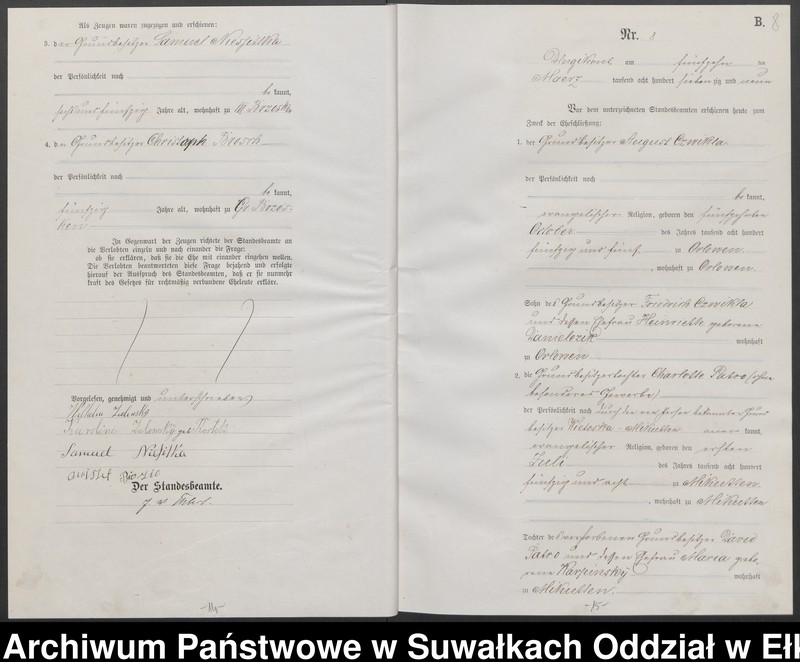 Als Zeugen waren zugezogen und erschienen:
3. der Grundbesitzer Samuel
der Persönlichkeit nach
be kannt,
sechsundfünfzig Jahre alt, wohnhaft zu
4. der Grundbesitzer Christoph
der Persönlichkeit nach
be kannt,
fünfzig Jahre alt, wohnhaft zu Gr Rozes-
ken
In Gegenwart der Zeugen richtete der Standesbeamte an
die Verlobten einzeln und nach einander die Frage:
ob sie erklären, daß sie die Ehe mit einander eingehen wollen.
Die Verlobten beantworteten diese Frage bejahend und erfolgte
hierauf der Ausspruch des Standesbeamten, daß er sie nunmehr
kraft des Gesetzes für rechtmäßig verbundene Eheleute erkläre.
Vorgelesen, genehmigt und unterschrieben
Wilhelm Zalensky
Karoline Zalensky geb
Samuel
Der Standesbeamte.
-14-
B. 8
Nr. 8
Dlugikont am fünfzehn ten
Maerz tausend acht hundert siebenzig und neun
Vor dem unterzeichneten Standesbeamten erschienen heute zum
Zweck der Eheschließung:
1. der Grundbesitzer August Czwikla
der Persönlichkeit nach
be kannt,
evangelischer Religion, geboren den fünfzehnten
October des Jahres tausend acht hundert
fünfzig und fünf zu Orlonen
, wohnhaft zu Orlonen
Sohn des Grundbesitzer Friedrich Czwikla
und dessen Ehefrau Heinriette geborene
Danielczik wohnhaft
zu Orlonen
2. die Grundbesitzertochter Charlotte Patro (ohne
besonderes Gewerbe)
der Persönlichkeit nach durch den von Person bekannten Grund
besitzer Mikutten aner kannt,
evangelischer Religion, geboren den ersten
Juli des Jahres tausend acht hundert
fünfzig und acht zu Mikutten
, wohnhaft zu Mikutten
Tochter des verstorbenen Grundbesitzer David
Patro und dessen Ehefrau Maria gebo-
rene Karpinsky wohnhaft
zu Mikutten.
-15-
Archiwum Państwowe w Suwałkach Oddział w Eł